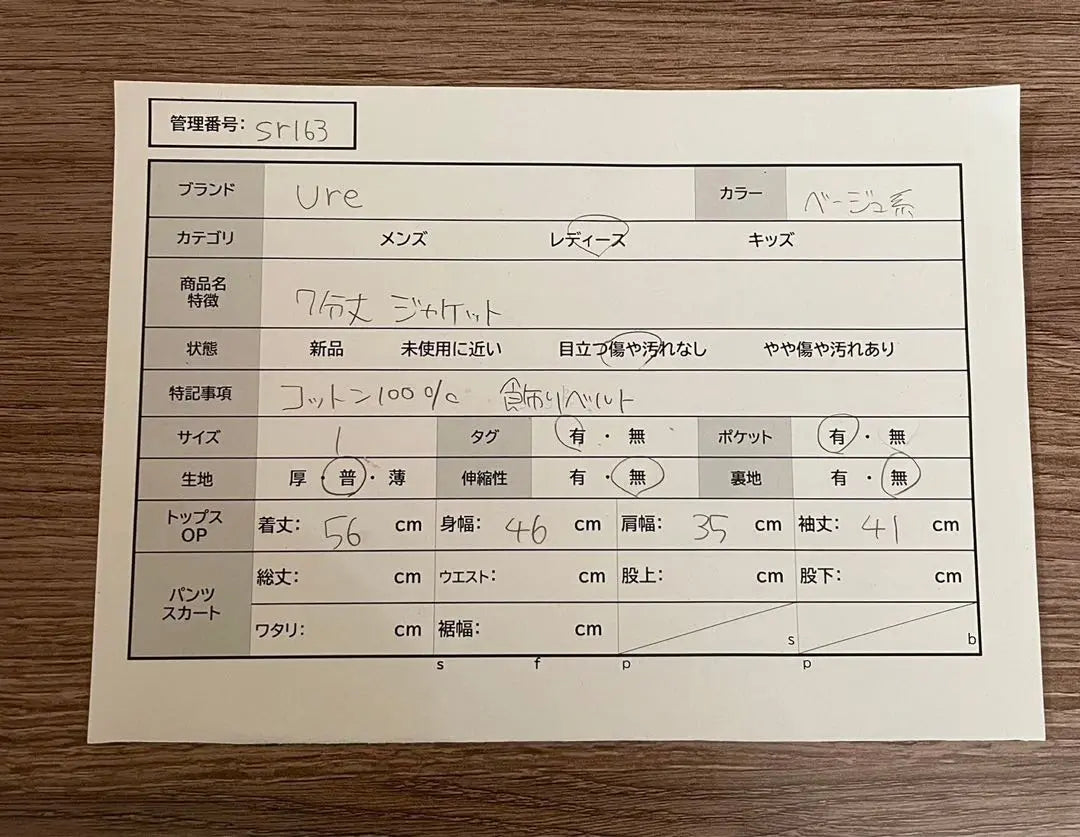 管理番号: sr163
ブランド ure カラー ベージュ系
カテゴリ メンズ レディース キッズ
商品名
特徴 7分丈 ジャケット
状態 新品 未使用に近い 目立つ傷や汚れなし やや傷や汚れあり
特記事項 コットン100% 飾りベルト
サイズ 1 タグ 有 ・ 無 ポケット 有 ・ 無
生地 厚 ・ 普 ・ 薄 伸縮性 有 ・ 無 裏地 有 ・ 無
トップス
OP 着丈: 56 cm 身幅: 46 cm 肩幅: 35 cm 袖丈: 41 cm
パンツ
スカート 総丈: cm ウエスト: cm 股上: cm 股下: cm
ワタリ: cm 裾幅: cm s b
s f p p